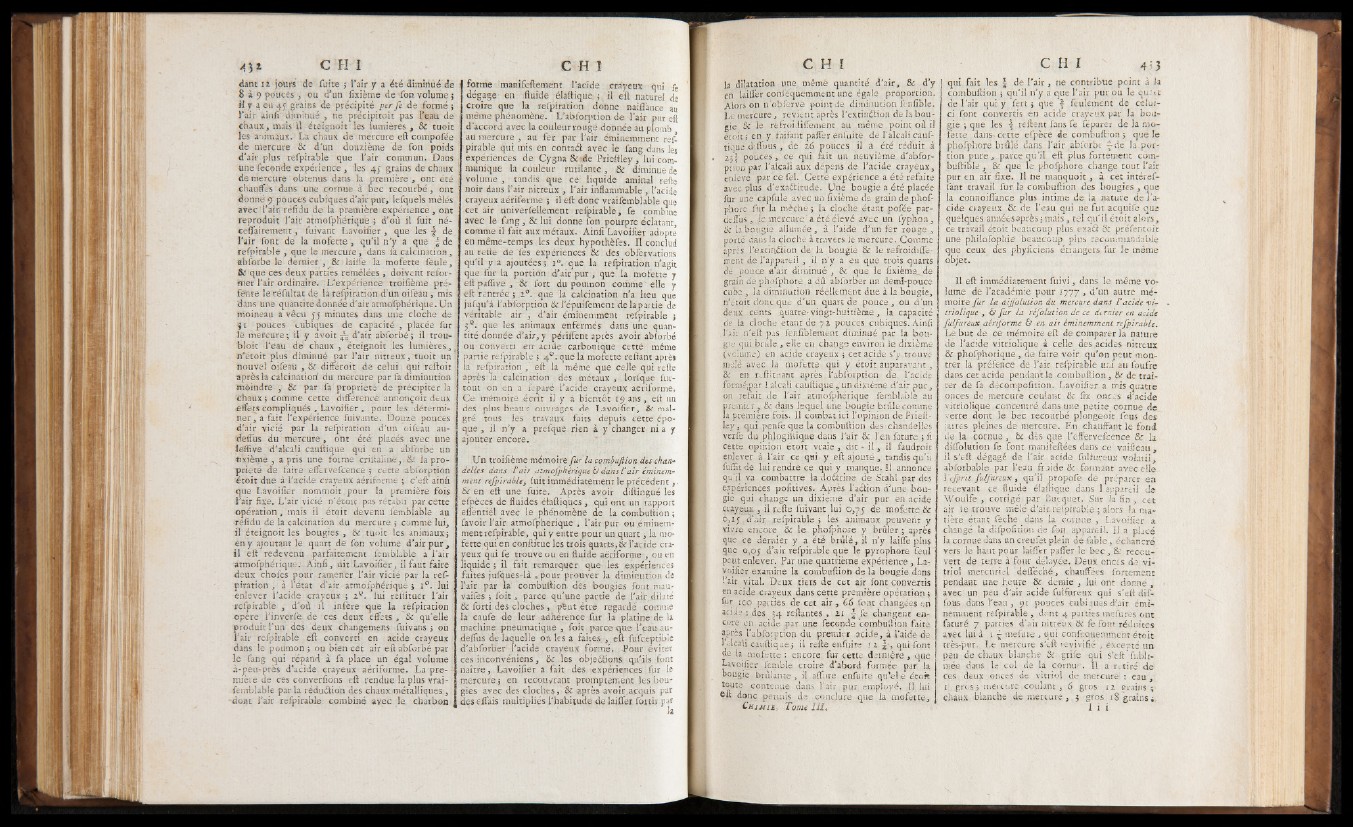 432 C H I C H I
dant 12 jours de ſuite ; l'air y a été diminué de
8 à 9 pouces , ou d'un ſixième de ſon volume ;
il y a eu 45 grains de précipité per ſe de formé ;
l'air ainſi diminué , ne précipitoit pas l'eau de
chaux, mais il éteignoit les lumières , & tuoit
les animaux. La chaux de mercure eſt compoſée
de mercure & d'un douzième de ſon poids
d'air plus reſpirable que l'air commun. Dans
une ſeconde expérience , les 45 grains de chaux
de mercure obtenus dans la première , ont été
chauffés dans une cornue à bec recourbé , ont
donné 9 pouces cubiques d'air pur, leſquels mêlés
avec l'air réſidu de la première expérience , ont
reproduit l'air atmoſphérique ; d'où il ſuit né-
ceſſairement , ſuivant Lavoiſier , que les de
l'air ſont de la mofette , qu'il n'y a que de
reſpirable , que le mercure , dans ſa calcination,
abſorbe le dernier , & laiſſe la mofette ſeule,
& que ces deux parties remêlées , doivent refor-
mer l'air ordinaire. L'expérience troiſième pré-
ſente le réſultat de la reſpiration d'un oiſeau , mis
dans une quantité donnée d'air atmoſphérique. Un
moineau a vécu 55 minutes dans une cloche de
31 pouces cubiques de capacité , placée ſur
le mercure ; il y avoit d'air abſorbé ; il trou-
bloit l'eau de chaux , éteignoit les lumières ,
n'étoit plus diminué par l'air nitreux , tuoit un
nouvel oiſeau , & différoit de celui qui reſtoit
après la calcination du mercure par ſa diminution
moindre , & par ſa propriété de précipiter la
chaux ; comme cette différence annonçoit deux
effets compliqués , Lavoiſier , pour les détermi-
ner , a fait l'expérience ſuivante. Douze pouces
d'air vicié par la reſpiration d'un oiſeau au-
deſſus du mercure , ont été placés avec une
leſſive d'alcali cauſtique qui en a abſorbé un
ſixième , a pris une forme criſtaline , & la pro-
priété de faire efferveſcence ; cette abſorption
étoit due à l'acide crayeux aériforme ; c'eſt ainſi
que Lavoiſier nommoit pour la première fois
l'air fixe. L'air vicié n'étoit pas rétabli par cette
opération , mais il étoit devenu ſemblable au
réſidu de la calcination du mercure ; comme lui,
il éteignoit les bougies , & tuoit les animaux ;
en y ajoutant le quart de ſon volume d'air pur ,
il eſt redevenu parfaitement ſemblable à l'air
atmoſphérique. Ainſi , dit Lavoiſier , il faut faire
deux choſes pour ramener l'air vicié par la reſ-
piration , à l'état d'air atmoſphérique ; 1°. lui
enlever l'acide crayeux ; 2°. lui reſtituer l'air
reſpirable , d'où il infère que la reſpiration
opère l'inverſe de ces deux effets , & qu'elle
produit l'un des deux changemens ſuivans ; ou
l'air reſpirable eſt converti en acide crayeux
dans le poumon ; ou bien cet air eſt abſorbé par
le ſang qui répand à ſa place un égal volume
à-peu-près d'acide crayeux aériforme. La pre-
mière de ces converſions eſt rendue la plus vrai-
ſemblable par la réduction des chaux métalliques ,
dont l'air reſpirable combiné avec le charbon
forme manifeſtement l'acide crayeux qui ſe
dégage en fluide élaſtique ; il eſt naturel de
croire que la reſpiration donne naiſſance au
même phénomène. L'abſorption de l'air pur eſt
d'accord avec la couleur rouge donnée au plomb ,
au mercure , au fer par l'air éminemment reſ-
pirable qui mis en contact avec le ſang dans les
expériences de Cygna & de Prieſtley , lui com-
munique la couleur rutilante , & diminue de
volume , tandis que ce liquide animal reſte
noir dans l'air nitreux , l'air inflammable , l'acide
crayeux aériforme ; il eſt donc vraiſemblable que
cet air univerſellement reſpirable , ſe combine
avec le ſang , & lui donne ſon pourpre éclatant,
comme il fait aux métaux. Ainſi Lavoiſier adopte
en même-temps les deux hypothèſes. Il conclud
au reſte de ſes expériences & des obſervations
qu'il y a ajoutées ; 1°. que la reſpiration n'agit
que ſur la portion d'air pur , que la mofette y
eſt paſſive , & ſort du poumon comme elle y
eſt rentrée ; 2°. que la calcination n'a lieu que
juſqu'à l'abſorption & l'épuiſement de la partie de
véritable air , d'air éminemment reſpirable ;
3°. que les animaux enfermés dans une quan-
tité donnée d'air, y périſſent après avoir abſorbé
ou converti en acide carbonique cette même
partie reſpirable ; 4°. que la mofette reſtant après
la reſpiration , eſt la même que celle qui reſte
après la calcination des métaux , lorſque ſur-
tout on en a ſéparé l'acide crayeux aériforme.
Ce mémoire écrit il y a bientôt 19 ans , eſt un
des plus beaux ouvrages de Lavoiſier , & mal-
gré tous les travaux faits depuis cette épo-
que , il n'y a preſque rien à y changer ni à y
ajouter encore.
Un troiſième mémoire ſur la combuſtion des chan-
delles dans l'air atmoſphérique & dans l'air éminem-
ment reſpirable, ſuit immédiatement le précédent ,
& en eſt une ſuite. Après avoir diſtingué les
eſpèces de fluides élaſtiques , qui ont un rapport
eſſentiel avec le phénomène de la combuſtion ;
ſavoir l'air atmoſphérique , l'air pur ou éminem-
ment reſpirable, qui y entre pour un quart , la mo-
fette qui en conſtitue les trois quarts, & l'acide cra-
yeux qui ſe trouve ou en fluide aériforme , ou en
liquide ; il fait remarquer que les expériences
faites juſques-là , pour prouver la diminution de
l'air par la combuſtion des bougies ſont mau-
vaiſes ; ſoit , parce qu'une partie de l'air dilaté
& ſorti des cloches , peut être regardé comme
la cauſe de leur adhérence ſur la platine de la
machine pneumatique , ſoit parce que l'eau au-
deſſus de laquelle on les a faites , eſt ſuſceptible
d'abſorber l'acide crayeux formé. Pour éviter
ces inconvéniens, & les objections qu'ils font
naître , Lavoiſier a fait des expériences ſur le
mercure ; en recouvrant promptement les bou-
gies avec des cloches , & après avoir acquis par
des eſſais multipliés l'habitude de laiſſer ſortir par
la
C H I C H I 433
la dilatation une même quantité d'air, & d'y
en laiſſer conſéquemment une égale proportion.
Alors on n'obſerve point de diminution ſenſible.
Le mercure , revient après l'extinction de la bou-
gie & le refroidiſſement au même point où il
étoit ; en y faiſant paſſer enſuite de l'alcali cauſ-
tique diſſous , de 26 pouces il a été réduit à
pouces , ce qui fait un neuvième d'abſor-
ption par l'alcali aux dépens de l'acide crayeux,
enlevé par ce ſel. Cette expérience a été refaite
avec plus d'exactitude. Une bougie a été placée
ſur une capſule avec un ſixième de grain de phoſ-
phore ſur la mèche ; la cloche étant poſée par-
deſſus , le mercure a été élevé avec un ſyphon,
& la bougie allumée , à l'aide d'un fer rouge ,
porté dans la cloche à travers le mercure. Comme
après l'extinction de la bougie & le refroidiſſe-
ment de l'appareil , il n'y a eu que trois quarts
de pouce d'air diminué , & que le ſixième de
grain de phoſphore a dû abſorber un demi-pouce
cube , la diminution réellement due à la bougie,
n'étoit donc que d'un quart de pouce , ou d'un
deux cents quatre-vingt-huitième , la capacité
de la cloche étant de 72 pouces cubiques. Ainſi
l'air n'eſt pas ſenſiblement diminué par la bou-
gie qui brûle , elle en change environ le dixième
(volume) en acide crayeux ; cet acide s'y trouve
mêlé avec la mofette qui y étoit auparavant ,
& en reſtituant après l'abſorption de l'acide
formé par l'alcali cauſtique , un dixième d'air pur ,
on refait de l'air atmoſphérique ſemblable au
premier , & dans lequel une bougie brûle comme
la première fois. Il combat ici l'opinion de Prieſt-
ley ; qui penſe que la combuſtion des chandelles
verſe du phlogiſtique dans l'air & l'en ſature ; ſi
cette opinion étoit vraie , dit - il , il faudroit
enlever à l'air ce qui y eſt ajouté , tandis qu'il
ſuffit de lui rendre ce qui y manque. Il annonce
qu'il va combattre la doctrine de Stahl par des
expériences poſitives. Après l'action d'une bou-
gie qui change un dixième d'air pur en acide
crayeux , il reſte ſuivant lui 0,75 de mofette &
0,15 d'air reſpirable ; les animaux peuvent y
vivre encore & le phoſphore y brûler ; après
que ce dernier y a été brûlé , il n'y laiſſe plus
que 0,05 d'air reſpirable que le pyrophore ſeul
peut enlever. Par une quatrième expérience , La-
voiſier examine la combuſtion de la bougie dans
l'air vital. Deux tiers de cet air ſont convertis
en acide crayeux dans cette première opération ;
ſur 100 parties de cet air , 66 ſont changées en
acide ; des 34 reſtantes , ſe changent en-
core en acide par une ſeconde combuſtion faite
après l'abſorption du premier acide , à l'aide de
l'alcali cauſtique ; il reſte enſuite , qui ſont
de la mofette : encore ſur cette dernière , que
Lavoiſier ſemble croire d'abord formée par la
bougie brûlante , il aſſure enſuite qu'elle étoit
toute contenue dans l'air pur employé. Il lui
eſt donc permis de conclure que la mofette ,
CHIMIE. Tome III.
qui fait les de l'air , ne contribue point à la
combuſtion ; qu'il n'y a que l'air pur ou le quart
de l'air qui y ſert ; que ſeulement de celui-
ci ſont convertis en acide crayeux par la bou-
gie ; que les reſtent ſans ſe ſéparer de la mo-
fette dans cette eſpèce de combuſtion ; que le
phoſphore brûlé dans l'air abſorbe de la por-
tion pure , parce qu'il eſt plus fortement com-
buſtible , & que le phoſphore change tout l'air
pur en air fixe. Il ne manquoit , à cet intéreſ-
ſant travail ſur la combuſtion des bougies , que
la connoiſſance plus intime de la nature de l'a-
cide crayeux & de l'eau qui ne fut acquiſe que
quelques années après ; mais , tel qu'il étoit alors,
ce travail étoit beaucoup plus exact & préſentoit
une philoſophie beaucoup plus recommandable
que ceux des phyſiciens étrangers ſur le même
objet.
Il eſt immédiatement ſuivi , dans le même vo-
lume de l'académie pour 1777 , d'un autre mé-
moire ſur la diſſolution du mercure dans l'acide vi-
triolique , & ſur la réſolution de ce dernier en acide
ſulfureux aériforme & en air éminemment reſpirable.
Le but de ce mémoire eſt de comparer la nature
de l'acide vitriolique à celle des acides nitreux
& phoſphorique , de faire voir qu'on peut mon-
trer la préſence de l'air reſpirable uni au ſoufre
dans cet acide pendant la combuſtion , & de trai-
ter de ſa décompoſition. Lavoiſier a mis quatre
onces de mercure coulant & ſix onces d'acide
vitriolique concentré dans une petite cornue de
verre dont le bec recourbé plongeoit ſous des
jattes pleines de mercure. En chauffant le fond
de la cornue , & dès que l'efferveſcence & la
diſſolution ſe ſont manifeſtées dans ce vaiſſeau ,
il s'eſt dégagé de l'air acide ſulfureux volatil ,
abſorbable par l'eau froide & formant avec elle
l'eſprit ſulfureux , qu'il propoſe de préparer en
recevant ce fluide élaſtique dans l'appareil de
Woulfe , corrigé par Bucquet. Sur la fin , cet
air ſe trouve mêlé d'air reſpirable ; alors la ma-
tière étant ſèche dans la cornue , Lavoiſier a
changé la diſpoſition de ſon appareil. Il a placé
la cornue dans un creuſet plein de ſable , échancré
vers le haut pour laiſſer paſſer le bec , & recou-
vert de terre à four délayée. Deux onces de vi-
triol mercuriel deſſéché , chauffées fortement
pendant une heure & demie , lui ont donné ,
avec un peu d'air acide ſulfureux qui s'eſt diſ-
ſous dans l'eau , 91 pouces cubiques d'air émi-
nemment reſpirable , dont 4 parties meſures ont
ſaturé 7 parties d'air nitreux & ſe ſont réduites
avec lui à meſure , qui conſéquemment étoit
très-pur. Le mercure s'eſt revivifié , excepté un
peu de chaux blanche & griſe qui s'eſt ſubli-
mée dans le col de la cornue. Il a retiré de
ces deux onces de vitriol de mercure : eau ,
gros ; mercure coulant , 6 gros 12 grains ;
chaux blanche de mercure , 3 gros 18 grains.
I i i